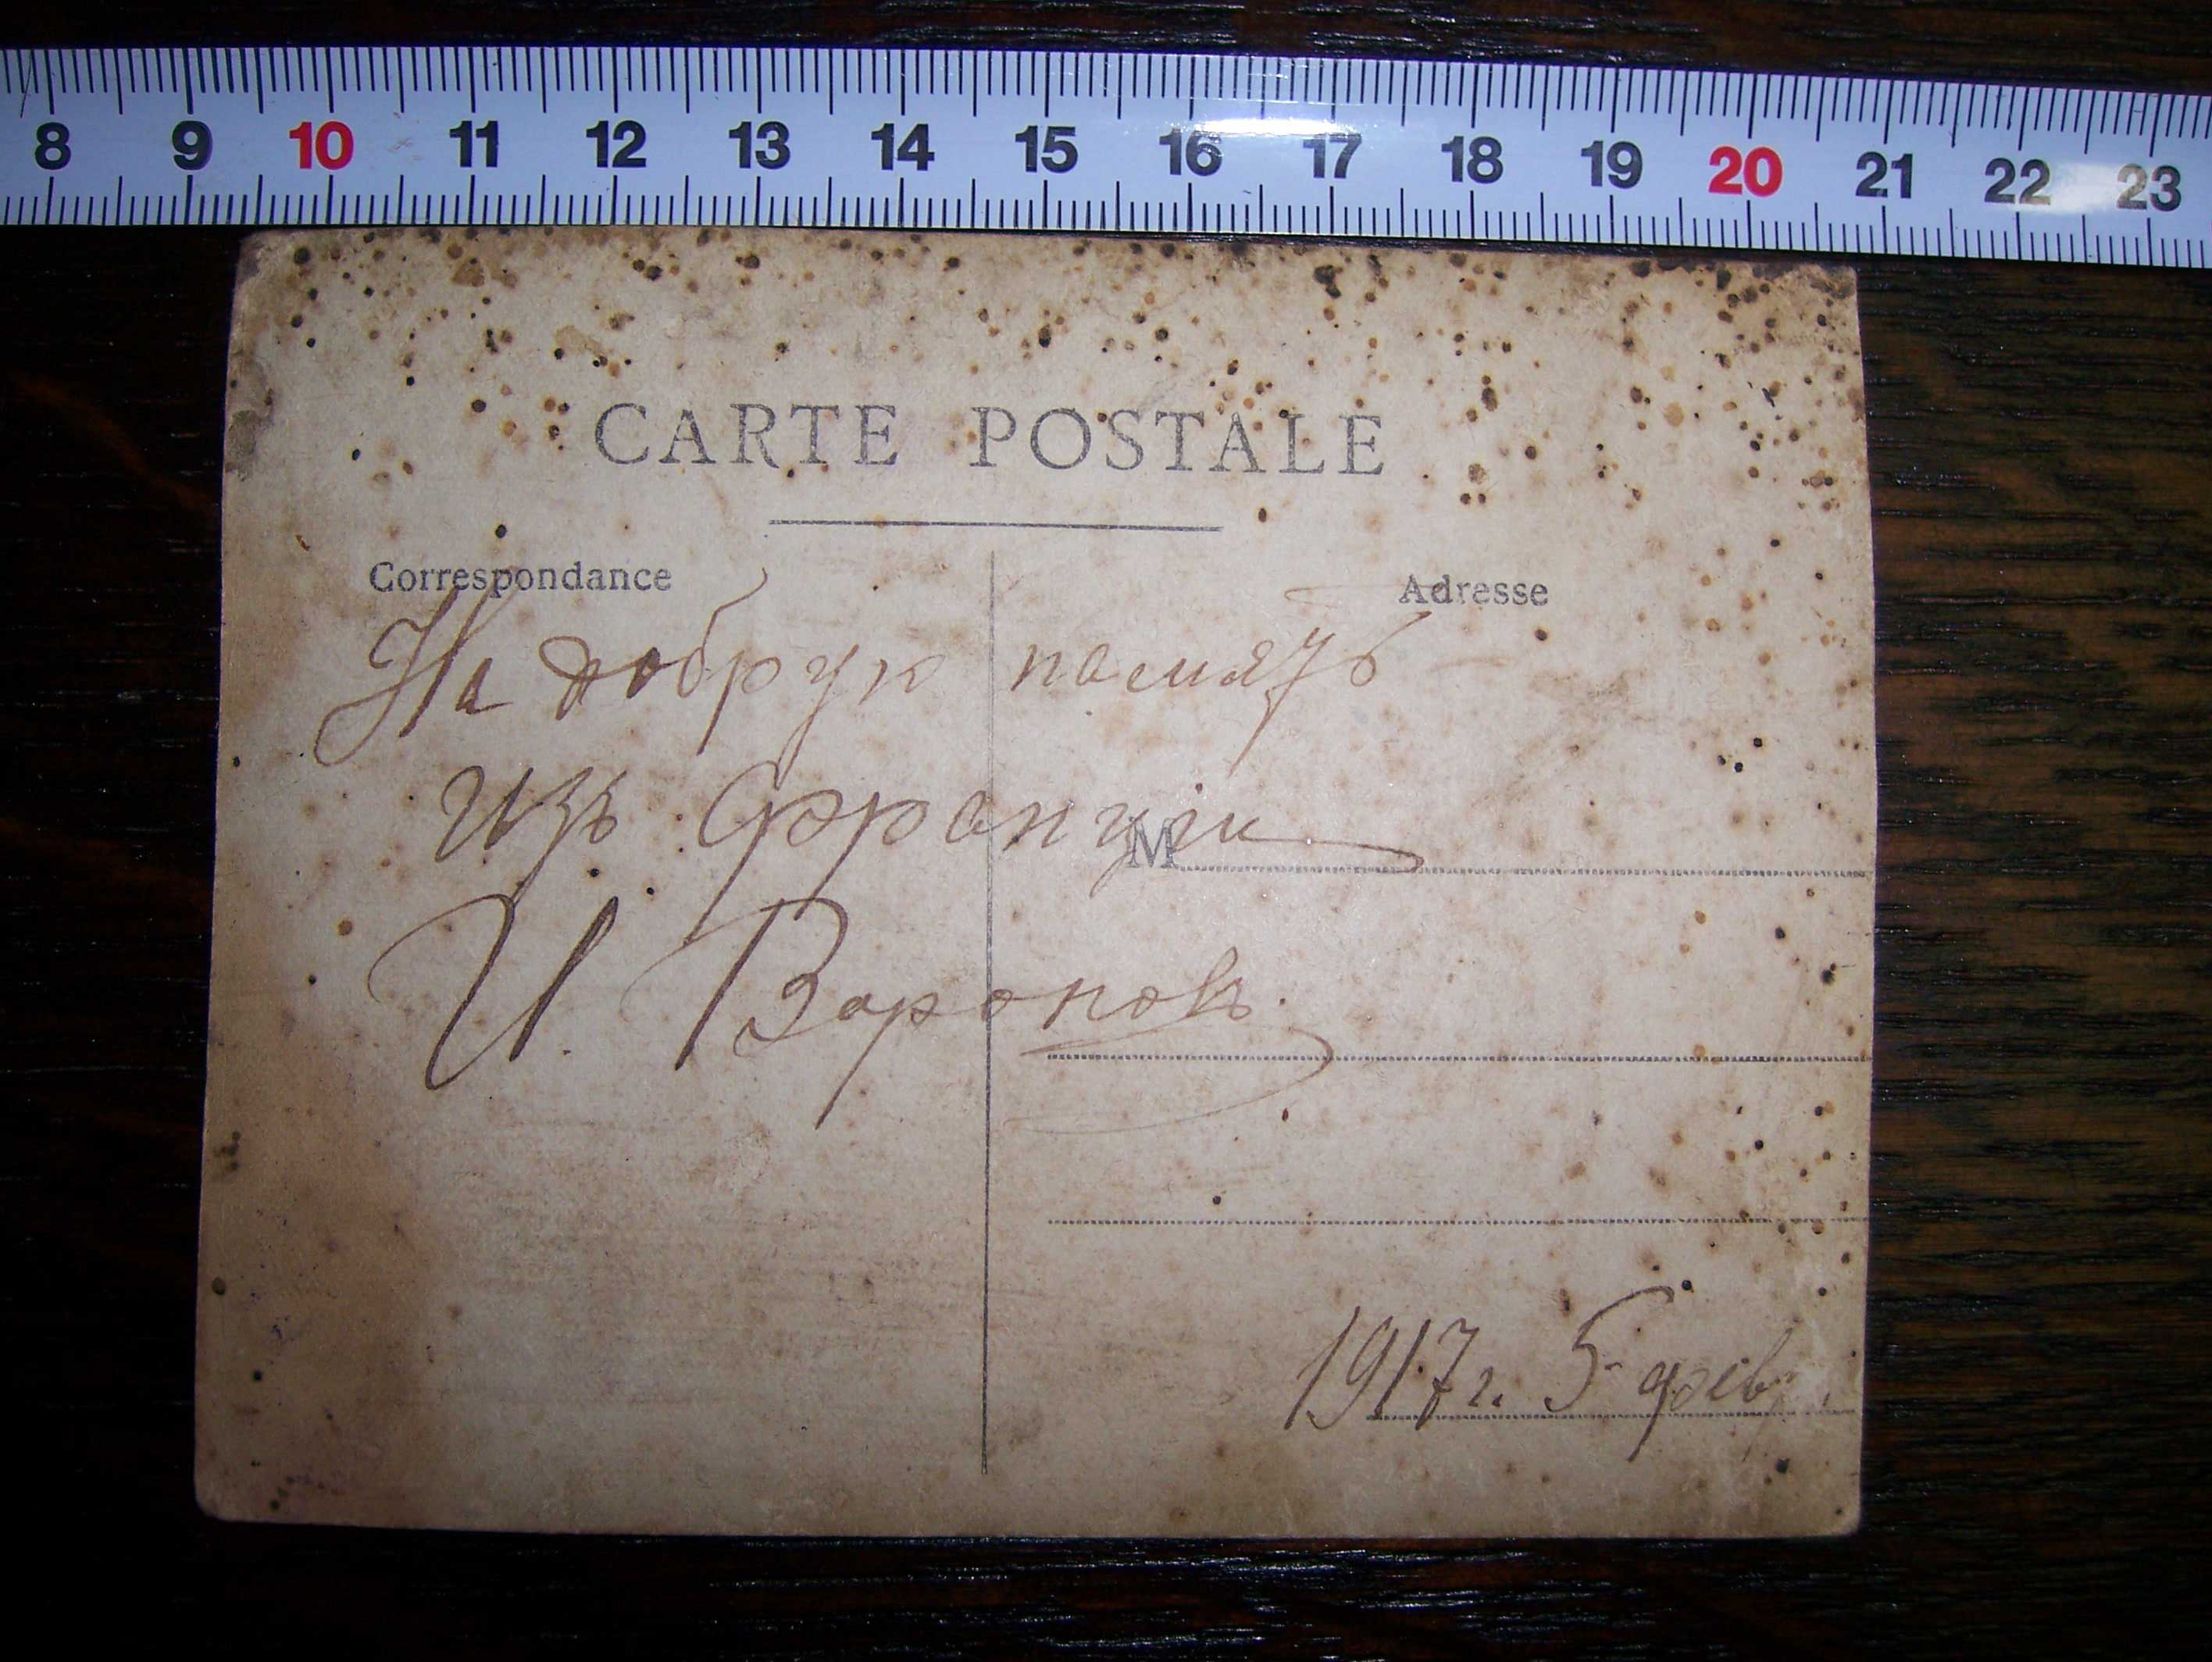 8 9 10 11 12 13 14 15 16 17 18 19 20 21 22 23
CARTE POSTALE
Correspondance
Adresse
На добрую память
изъ Франціи
M
И. Вароновъ.
1917 г. 5 февр.